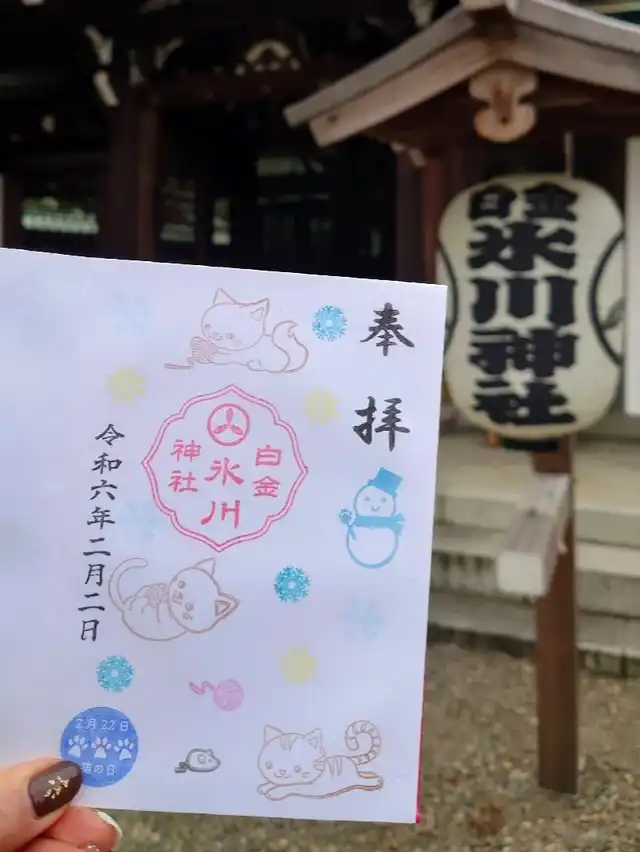 奉拝
白金
氷川
神社
令和六年二月二日
2月22日
猫の日
白金
氷川神社